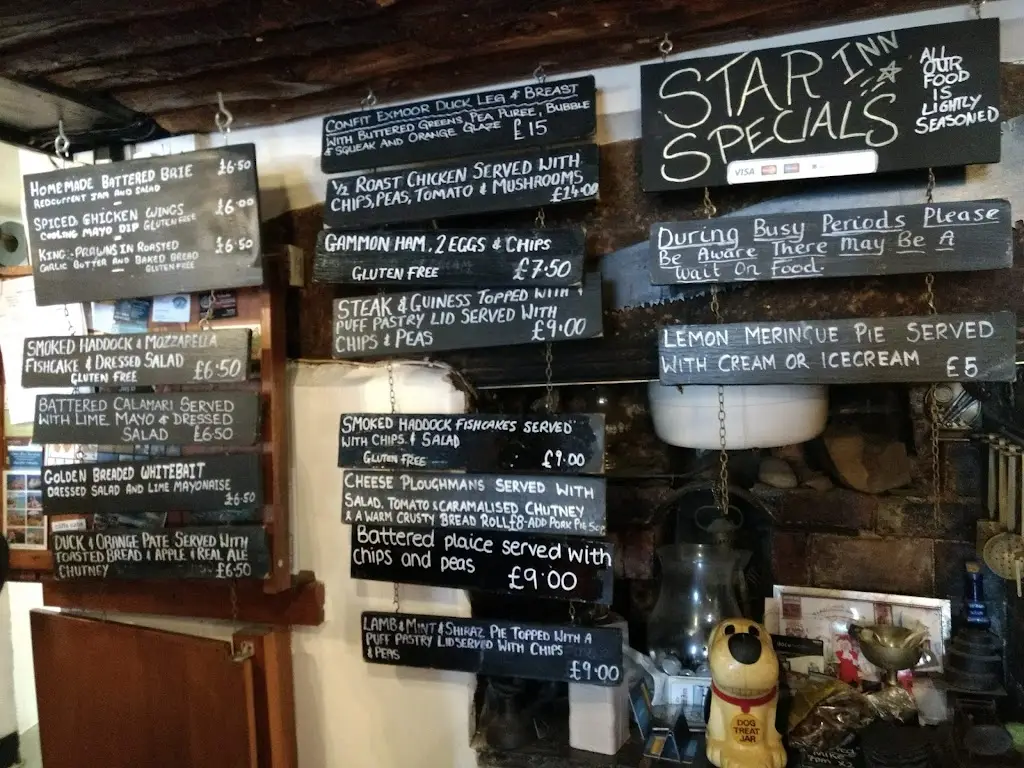 HOMEMADE BATTERED BRIE £6.50
REDCURRENT JAM AND SALAD
SPICED CHICKEN WINGS £6.00
COOLING MAYO DIP GLUTEN FREE
KING PRAWNS IN ROASTED £6.50
GARLIC BUTTER AND BAKED BREAD
GLUTEN FREE
SMOKED HADDOCK & MOZZARELLA
FISHCAKE & DRESSED SALAD £6.50
GLUTEN FREE
BATTERED CALAMARI SERVED
WITH LIME MAYO & DRESSED
SALAD £6.50
GOLDEN BREADED WHITEBAIT
DRESSED SALAD AND LIME MAYONAISE
£6.50
DUCK & ORANGE PATE SERVED WITH
TOASTED BREAD & APPLE & REAL ALE
CHUTNEY £6.50
CONFIT EXMOOR DUCK LEG & BREAST
WITH BUTTERED GREENS, PEA PUREE, BUBBLE
& SQUEAK AND ORANGE GLAZE £15
½ ROAST CHICKEN SERVED WITH
CHIPS, PEAS, TOMATO & MUSHROOMS
£14.00
GAMMON HAM, 2 EGGS & CHIPS
GLUTEN FREE £7.50
STEAK & GUINESS TOPPED WITH
PUFF PASTRY LID SERVED WITH
CHIPS & PEAS £9.00
SMOKED HADDOCK FISHCAKES SERVED
WITH CHIPS & SALAD
GLUTEN FREE £9.00
CHEESE PLOUGHMANS SERVED WITH
SALAD, TOMATO & CARAMALISED CHUTNEY
& A WARM CRUSTY BREAD ROLL £8-ADD PORK PIE 50p
Battered plaice served with
chips and peas
£9.00
LAMB & MINT & SHIRAZ PIE TOPPED WITH A
PUFF PASTRY LID SERVED WITH CHIPS
& PEAS £9.00
STAR INN
SPECIALS
ALL
OUR
FOOD
IS
LIGHTLY
SEASONED
VISA
During Busy Periods Please
Be Aware There May Be A
Wait On Food.
LEMON MERINGUE PIE SERVED
WITH CREAM OR ICECREAM £5
DOG
TREAT
JAR